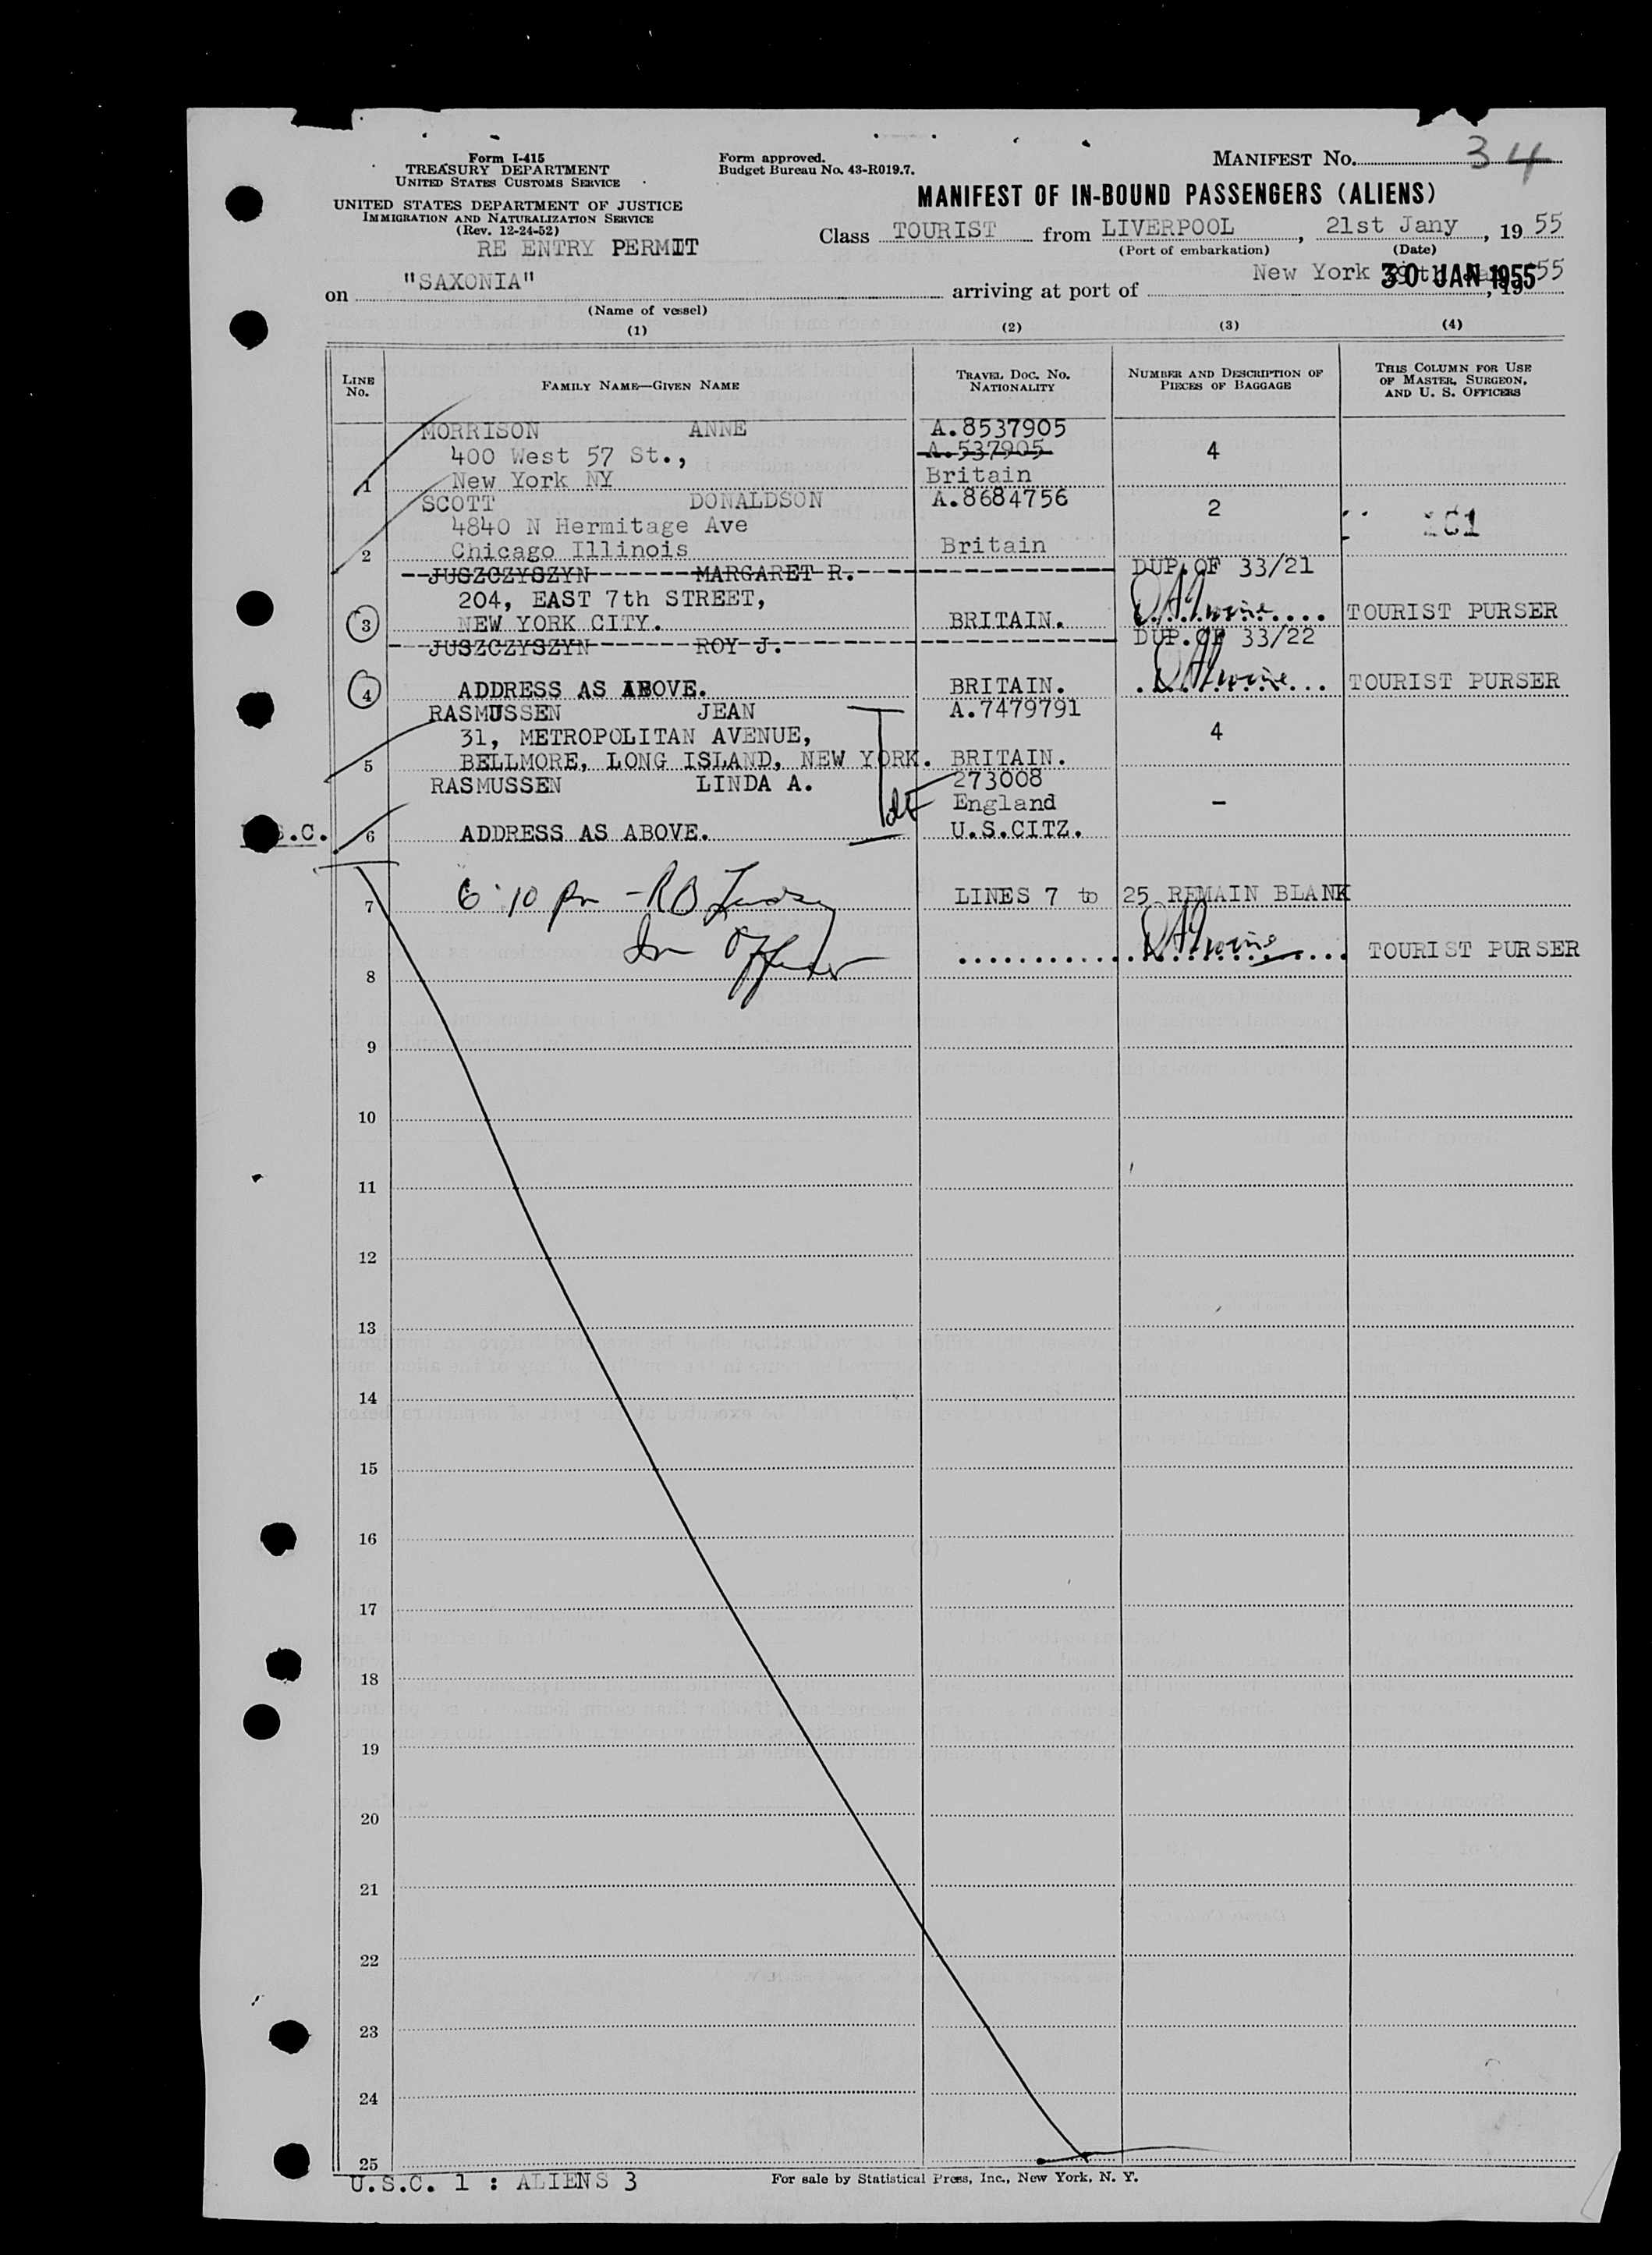 Form I-415
TREASURY DEPARTMENT
UNITED STATES CUSTOMS SERVICE
UNITED STATES DEPARTMENT OF JUSTICE
IMMIGRATION AND NATURALIZATION SERVICE
(Rev. 12-24-52)
RE ENTRY PERMIT
Form approved.
Budget Bureau No. 43-R019.7.
MANIFEST NO. 34
MANIFEST OF IN-BOUND PASSENGERS (ALIENS)
Class TOURIST from LIVERPOOL, 21st Jany, 1955
(Port of embarkation) (Date)
on "SAXONIA" arriving at port of New York 30 JAN 1955
(Name of vessel)
(1) (2) (3) (4)
LINE No. FAMILY NAME—GIVEN NAME TRAVEL DOC. NO. NATIONALITY NUMBER AND DESCRIPTION OF PIECES OF BAGGAGE THIS COLUMN FOR USE OF MASTER, SURGEON, AND U. S. OFFICERS
MORRISON ANNE A.8537905
400 West 57 St., A.537905 4
1 New York NY Britain
SCOTT DONALDSON A.8684756 2
4840 N Hermitage Ave
2 Chicago Illinois Britain
JUSZCZYSZYN MARGARET R. DUP. OF 33/21
204, EAST 7th STREET,
3 NEW YORK CITY. BRITAIN. TOURIST PURSER
JUSZCZYSZYN ROY J. DUP. OF 33/22
4 ADDRESS AS ABOVE. BRITAIN. TOURIST PURSER
RASMUSSEN JEAN A.7479791
31, METROPOLITAN AVENUE, 4
5 BELLMORE, LONG ISLAND, NEW YORK. BRITAIN.
RASMUSSEN LINDA A. 273008
England -
6 ADDRESS AS ABOVE. U.S.CITZ.
7 6:10 pm - RB LINES 7 to 25 REMAIN BLANK
Im Officer TOURIST PURSER
8
9
10
11
12
13
14
15
16
17
18
19
20
21
22
23
24
25
U.S.C. 1 : ALIENS 3 For sale by Statistical Press, Inc., New York, N. Y.